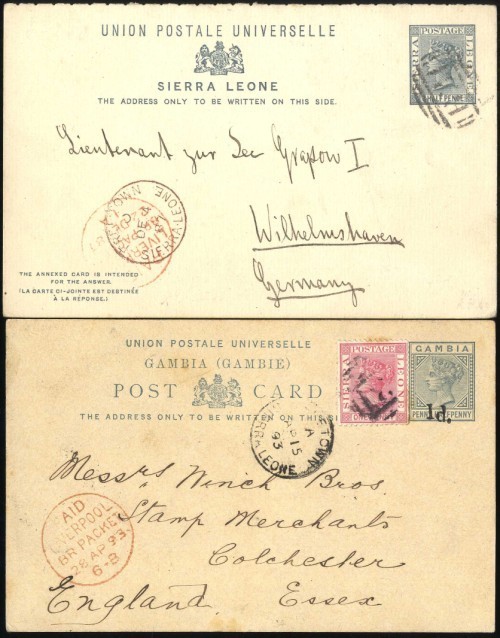 UNION POSTALE UNIVERSELLE
SIERRA LEONE
THE ADDRESS ONLY TO BE WRITTEN ON THIS SIDE.
POSTAGE
SIERRA
LEONE
HALF PENNY
Lieutenant zur See Grapow I
Wilhelmshaven
Germany
THE ANNEXED CARD IS INTENDED
FOR THE ANSWER.
(LA CARTE CI-JOINTE EST DESTINÉE
À LA RÉPONSE.)
UNION POSTALE UNIVERSELLE
GAMBIA (GAMBIE)
POST CARD
THE ADDRESS ONLY TO BE WRITTEN ON THIS SI
POSTAGE
SIERRA
LEONE
GAMBIA
1d.
FREETOWN
A
AP 15
93
SIERRA LEONE
Messrs Winch Bros.
Stamp Merchants
Colchester
England. Essex
PAID
LIVERPOOL
BR PACKET
28 AP 93
6-B